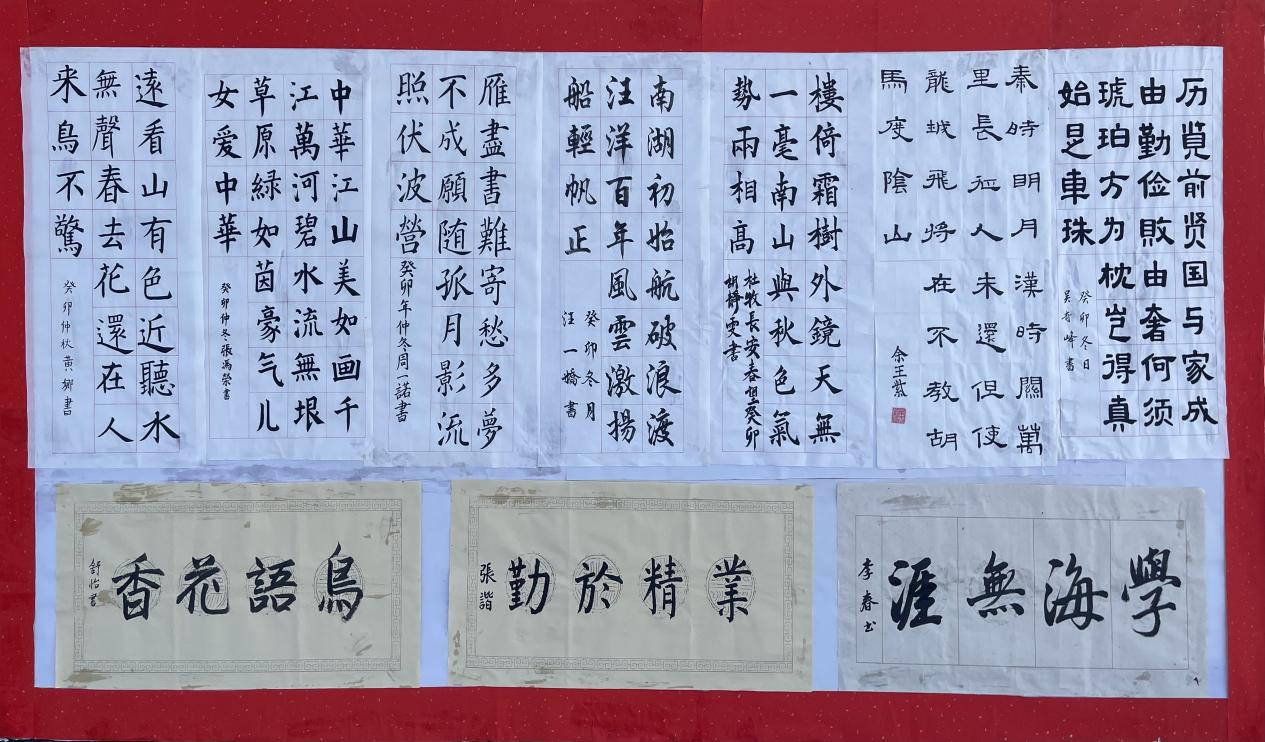 历览前贤国与家成
由勤俭败由奢何须
琥珀方为枕岂得真
始是車珠
癸卯冬日
吴奇峰書
秦時明月漢時關萬
里長征人未還但使
龍城飛将在不教胡
馬度陰山
余王紫
樓倚霜樹外鏡天無
一毫南山與秋色氣
勢兩相高
杜牧長安春望癸卯
胡靜雯書
南湖初始航破浪渡
汪洋百年風雲激揚
船輕帆正
癸卯冬月
汪一嬌書
雁盡書難寄愁多夢
不成願随孤月影流
照伏波營
癸卯年仲冬周一諾書
中華江山美如画千
江萬河碧水流無垠
草原緑如茵豪气儿
女爱中華
癸卯仲冬張馮榮書
遠看山有色近聽水
無聲春去花還在人
来鳥不驚
癸卯仲秋黄娜書
學海無涯
李春书
業精於勤
張諧
鳥語花香
舒怡書